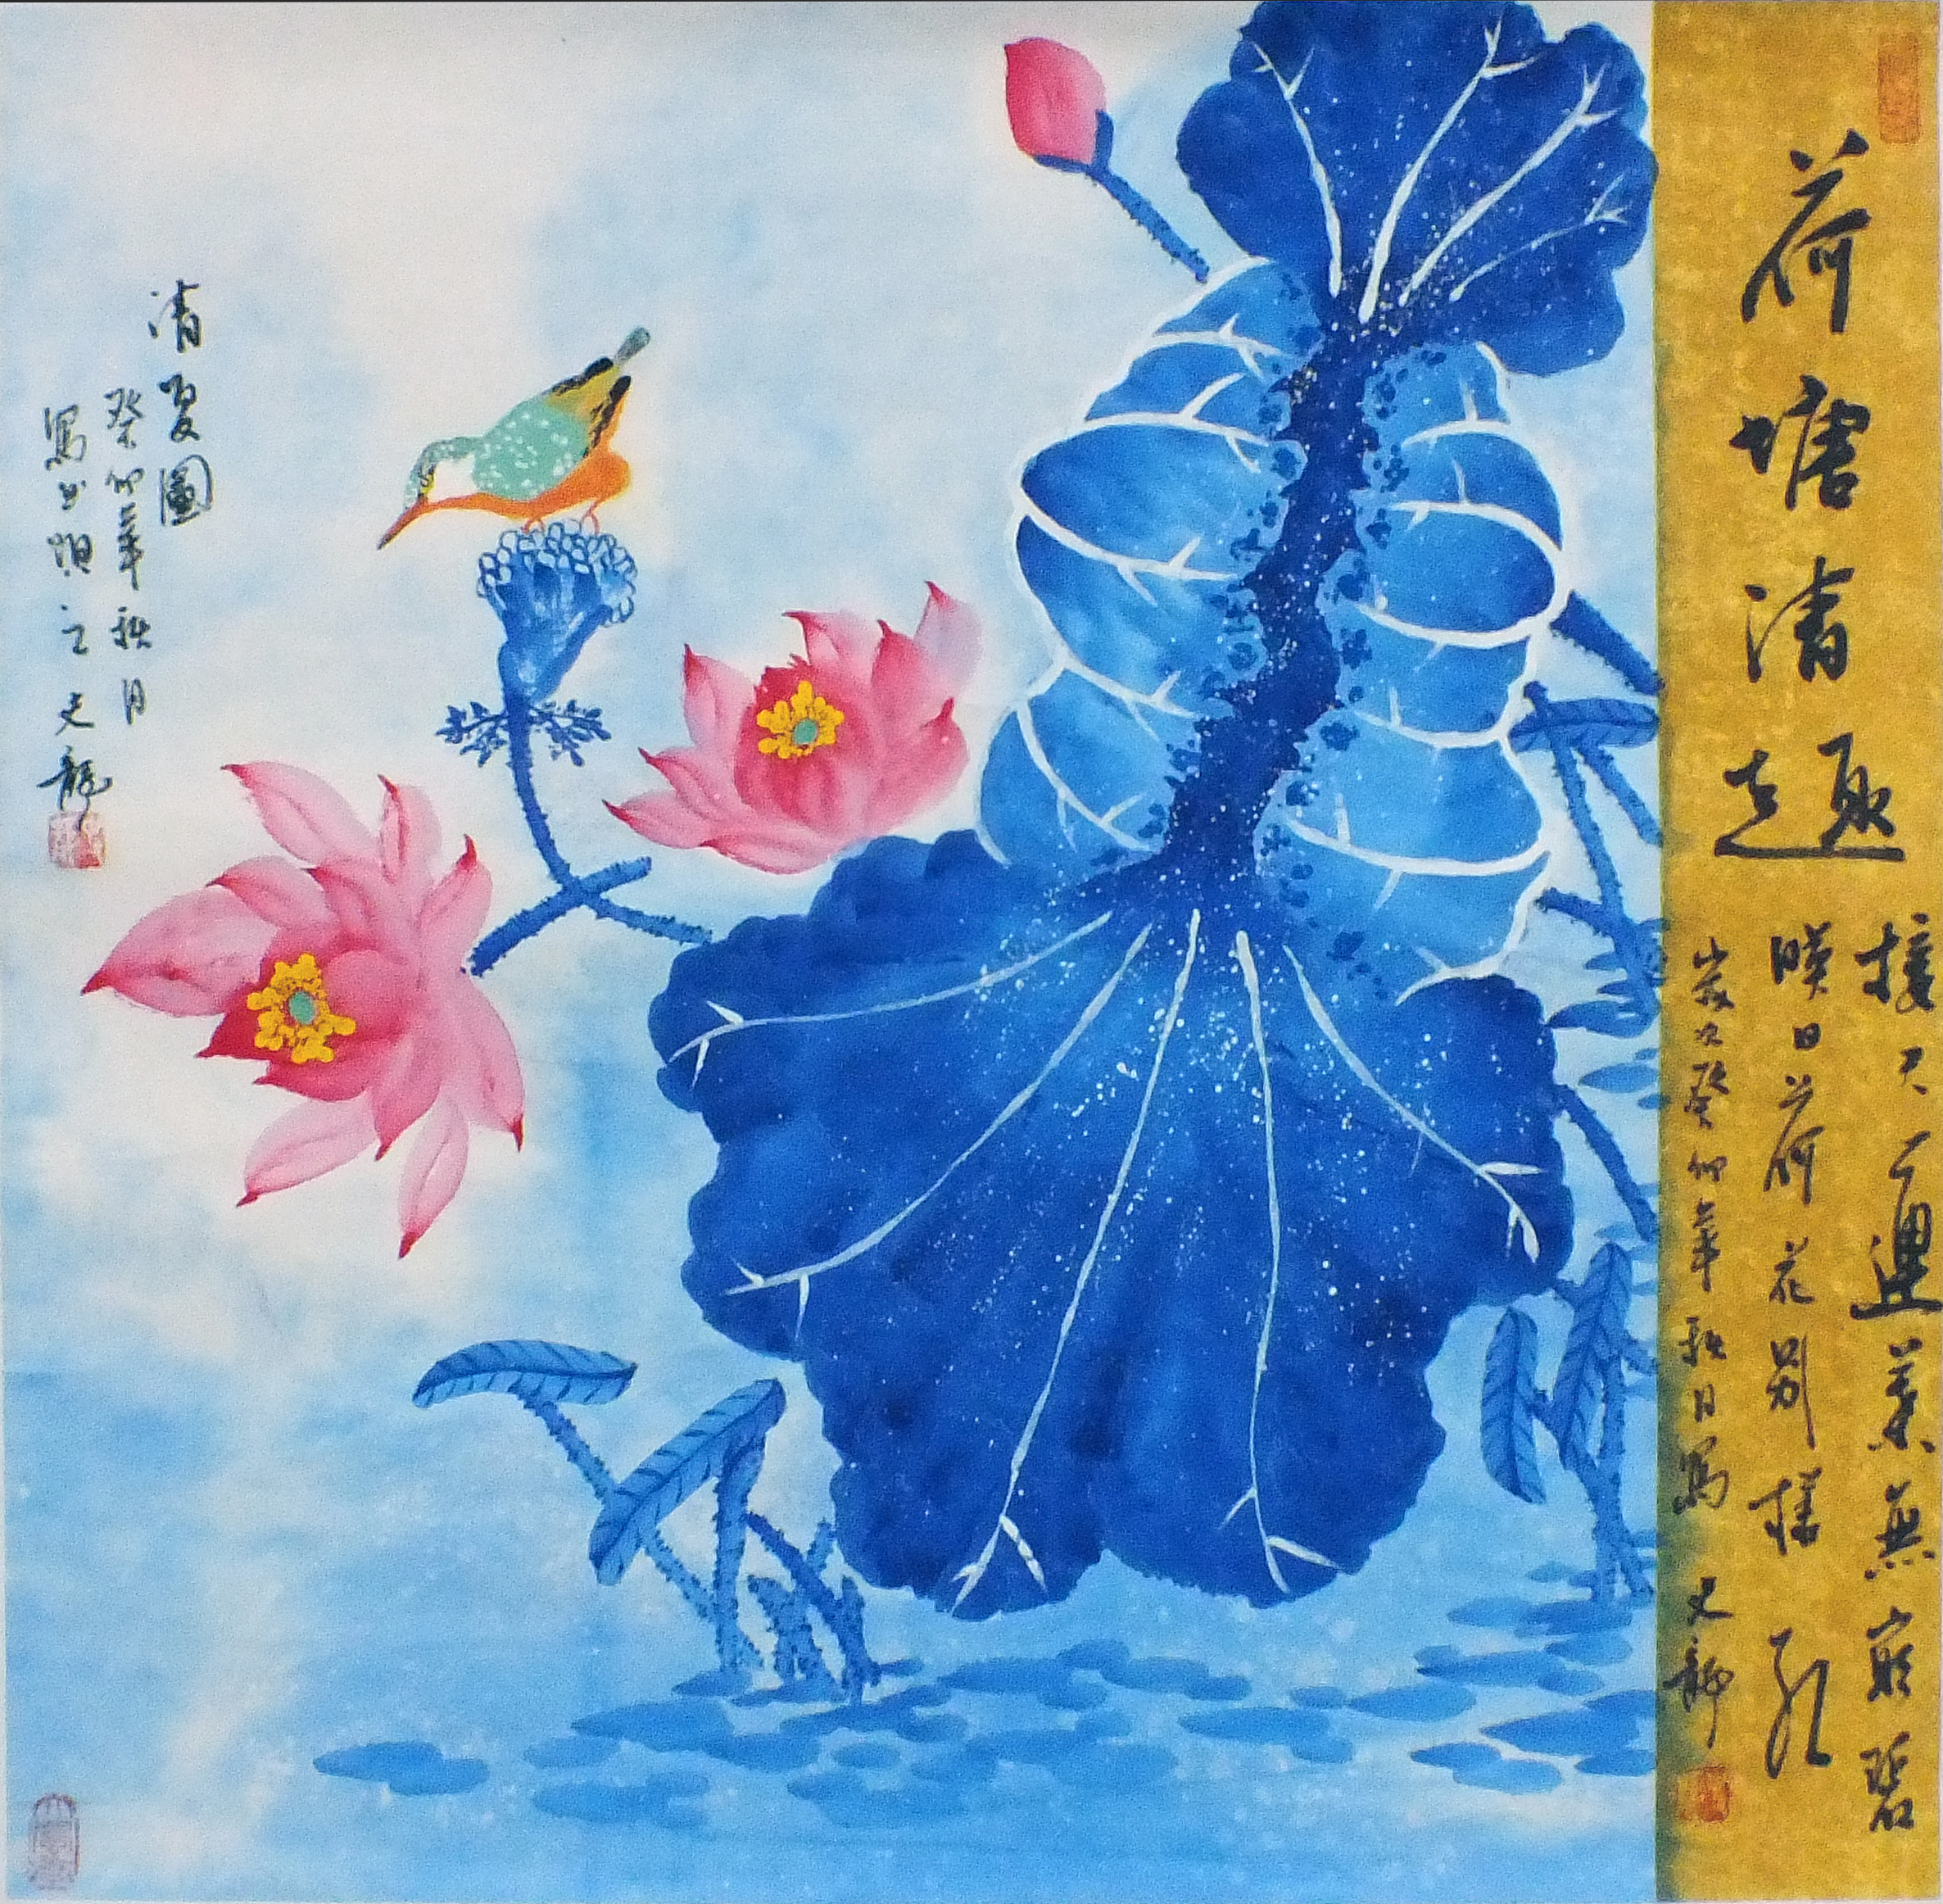 荷塘清趣
接天蓮葉無窮碧
映日荷花別樣紅
歲次癸卯年秋日寫 文龍
清夏圖
癸卯年秋月
寫於烟台 文龍